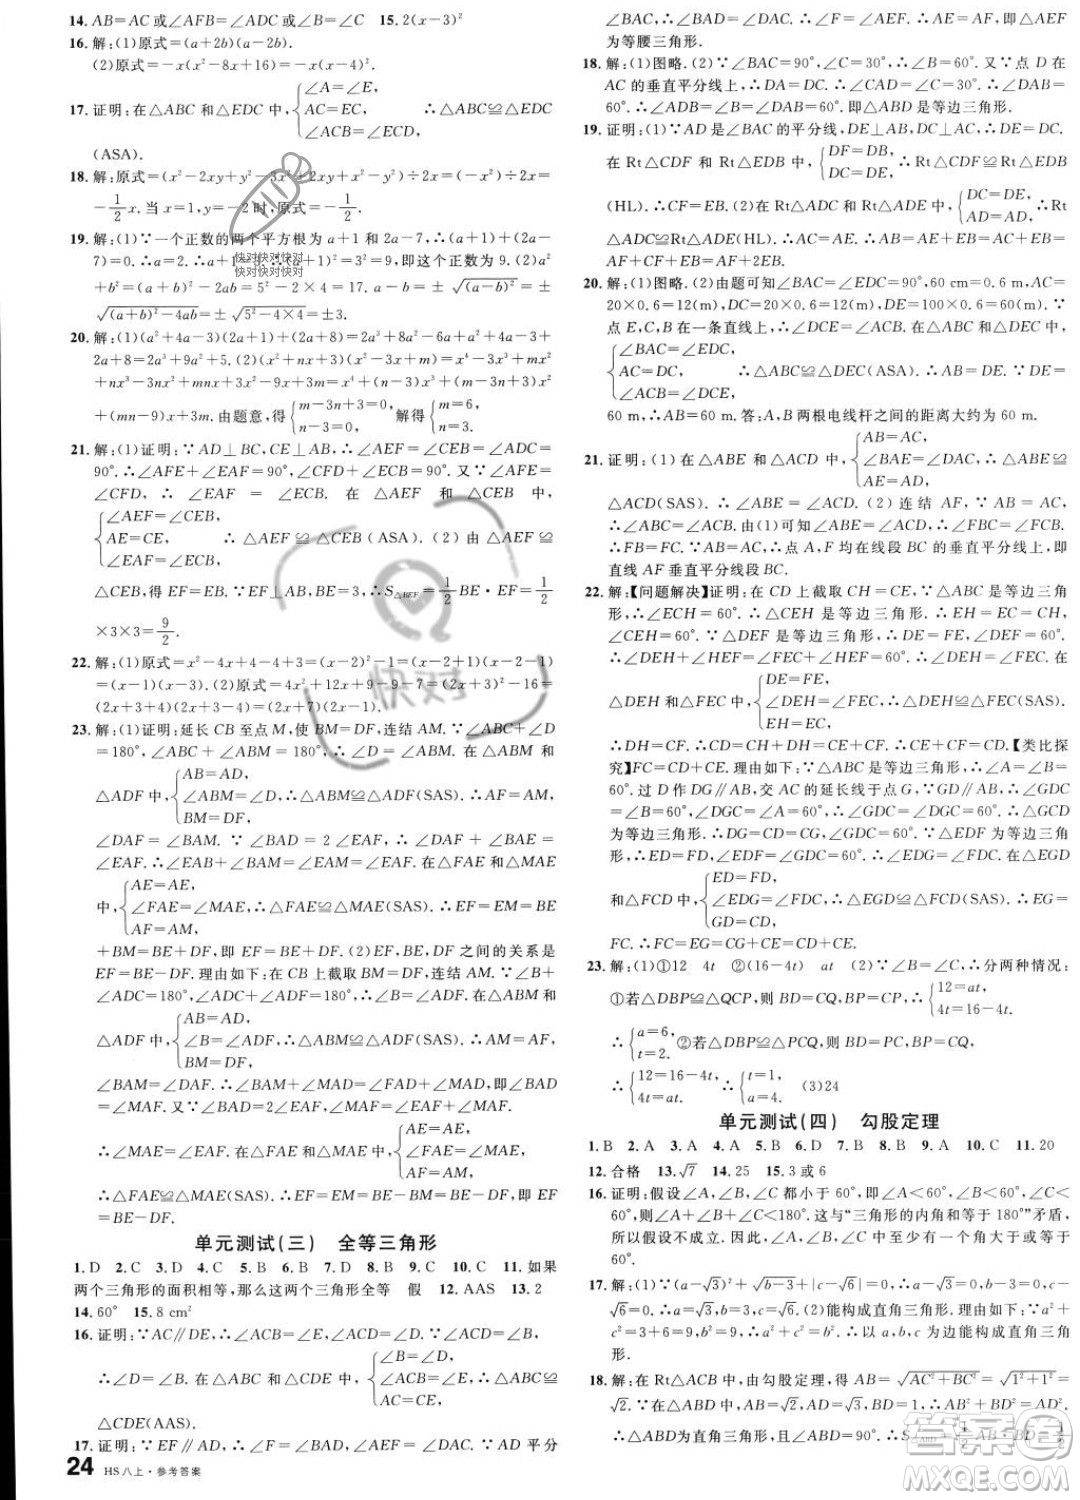 14. AB=AC或∠AFB=∠ADC或∠B=∠C  15. 2(x-3)²
16. 解:(1)原式=(a+2b)(a-2b).
(2)原式=-x(x²-8x+16)=-x(x-4)².
17. 证明:在△ABC 和△EDC 中,{∠A=∠E, AC=EC, ∠ACB=∠ECD, ∴△ABC≌△EDC
(ASA).
18. 解:原式=(x²-2xy+y²-3x²+
x)÷2x=(-x²)÷2x=
-1/2x. 当 x=1,y=-2时,原式=-1/2.
19. 解:(1)∵一个正数的两个平方根为a+1和2a-7,
=0.∴a=2.∴a+1=3.∴(a+1)²=3²=9,即这个正数为 9.(2)a²
+b²=(a+b)²-2ab=5²-2×4=17. a-b=±√(a-b)²=±
√(a+b)²-4ab=±√5²-4×4=±3.
20. 解:(1)(a²+4a-3)(2a+1)÷(2a+1)
2a+8=2a³+9a²+5. (2)(x²+nx+3)(x²-3x+m)=x⁴-3x³+mx²+
nx³-3nx²+mnx+3x²-9x+3m=x⁴+(n-3)x³+(m-3n+3)x²
+(mn-9)x+3m. 由题意,得{m-3n+3=0, n-3=0. 解得{m=6, n=3.
21. 解:(1)证明:∵AD⊥BC,CE⊥AB,∴∠AEF=∠CEB=∠ADC=
90°.∴∠AFE+∠EAF=90°,∠CFD+∠ECB=90°. 又∵∠AFE=
∠CFD, ∴∠EAF=∠ECB. 在△AEF 和△CEB 中,
{∠AEF=∠CEB, AE=CE, ∠EAF=∠ECB, ∴△AEF≌△CEB (ASA). (2) 由△AEF≌
△CEB,得 EF=EB.∵EF⊥AB,BE=3,∴S△BEF=1/2BE·EF=1/2
×3×3=9/2.
22. 解:(1)原式=x²-4x+4-4+3=(x-2)²-1=(x-2+1)(x-2-1)
=(x-1)(x-3). (2)原式=4x²+12x+9-9-7=(2x+3)²-16=
(2x+3+4)(2x+3-4)=(2x+7)(2x-1).
23. 解:(1)证明:延长 CB 至点 M,使 BM=DF,连结 AM. ∵∠ABC+∠D
=180°,∠ABC+∠ABM=180°,∴∠D=∠ABM. 在△ABM 和
△ADF 中,{AB=AD, ∠ABM=∠D, BM=DF, ∴△ABM≌△ADF(SAS). ∴AF=AM,
∠DAF=∠BAM. ∵∠BAD=2∠EAF, ∴∠DAF+∠BAE=
∠EAF. ∴∠EAB+∠BAM=∠EAM=∠EAF. 在△FAE 和△MAE
中,{AE=AE, ∠FAE=∠MAE, AF=AM, ∴△FAE≌△MAE(SAS). ∴EF=EM=BE
+BM=BE+DF,即 EF=BE+DF. (2)EF,BE,DF 之间的关系是
EF=BE-DF. 理由如下:在 CB 上截取BM=DF,连结AM. ∵∠B+
∠ADC=180°,∠ADC+∠ADF=180°,∴∠B=∠ADF. 在△ABM 和
△ADF 中,{AB=AD, ∠B=∠ADF, BM=DF, ∴△ABM≌△ADF(SAS). ∴AM=AF,
∠BAM=∠DAF. ∴∠BAM+∠MAD=∠FAD+∠MAD, 即∠BAD=
∠MAF. 又∵∠BAD=2∠EAF,∴∠MAF=2∠EAF. ∴∠MAE=∠EAF.
∴∠MAE=∠FAE. 在△FAE 和△MAE 中,{AE=AE, ∠FAE=∠MAE, AF=AM,
∴△FAE≌△MAE(SAS). ∴EF=EM=BE-BM=BE-DF,即 EF
=BE-DF.
单元测试(三)  全等三角形
1. D  2. C  3. D  4. C  5. A  6. D  7. D  8. B  9. C  10. C  11. 如果
两个三角形的面积相等,那么这两个三角形全等  假  12. AAS  13. 2
14. 60°  15. 8 cm²
16. 证明:∵AC∥DE,∴∠ACB=∠E,∠ACD=∠D. ∵∠ACD=∠B,
∴∠D=∠B. 在△ABC 和△CDE 中,{∠B=∠D, ∠ACB=∠E, AC=CE, ∴△ABC≌
△CDE(AAS).
17. 证明:∵EF∥AD,∴∠BAD=∠AFE,∠CAD=∠E. ∵AD 平分
24 HS八上·参考答案
∠BAC,∴∠BAD=∠CAD. ∴∠F=∠AEF. ∴AE=AF,即△AEF
为等腰三角形.
18. 解:(1)图略. (2)∵∠BAC=90°,∠C=30°,∴∠B=60°. 又∵点 D 在
AC 的垂直平分线上,∴DA=DC. ∴∠CAD=∠C=30°. ∴∠DAB=
60°. ∴∠ADB=∠B=∠DAB=60°. 即△ABD 是等边三角形.
19. 证明:(1)∵AD 是∠BAC 的平分线,DE⊥AB,DC⊥AC,∴DE=DC.
在 Rt△CDF 和 Rt△EDB 中,{DF=DB, DC=DE, ∴Rt△CDF≌Rt△EDB
(HL). ∴CF=EB. (2)在 Rt△ADC 和 Rt△ADE 中,{DC=DE, AD=AD, ∴Rt
△ADC≌Rt△ADE(HL). ∴AC=AE. ∴AB=AE+EB=AC+EB=
AF+CF+EB=AF+2EB.
20. 解:(1)图略. (2)由题可知∠BAC=∠EDC=90°,60 cm=0.6 m,AC=
20×0.6=12(m),DC=20×0.6=12(m),DE=100×0.6=60(m). ∵
点 E,C,B 在一条直线上,∴∠DCE=∠ACB. 在△ABC 和△DEC 中,
{∠BAC=∠EDC, AC=DC, ∠ACB=∠DCE, ∴△ABC≌△DEC(ASA). ∴AB=DE. ∵DE=
60 m,∴AB=60 m. 答:A,B 两根电线杆之间的距离大约为 60 m.
21. 证明:(1)在△ABE 和△ACD 中,{AB=AC, ∠BAE=∠DAC, AE=AD, ∴△ABE≌
△ACD(SAS). ∴∠ABE=∠ACD. (2) 连结 AF,∵AB=AC,
∴∠ABC=∠ACB. 由(1)可知∠ABE=∠ACD,∴∠FBC=∠FCB.
∴FB=FC. ∵AB=AC,∴点 A,F 均在线段 BC 的垂直平分线上,即
直线 AF 垂直平分线段 BC.
22. 解:【问题解决】证明:在 CD 上截取 CH=CE,∵△ABC 是等边三角
形,∴∠ECH=60°. ∴△CEH 是等边三角形. ∴EH=EC=CH,
∠CEH=60°. ∵△DEF 是等边三角形,∴DE=FE,∠DEF=60°.
∴∠DEH+∠HEF=∠FEC+∠HEF=60°. ∴∠DEH=∠FEC. 在
△DEH 和△FEC 中,{DE=FE, ∠DEH=∠FEC, EH=EC, ∴△DEH≌△FEC(SAS).
∴DH=CF. ∴CD=CH+DH=CE+CF. ∴CE+CF=CD.【类比探
究】FC=CD+CE. 理由如下:∵△ABC 是等边三角形,∴∠A=∠B=
60°. 过 D 作 DG∥AB,交 AC 的延长线于点 G,∵GD∥AB,∴∠GDC
=∠B=60°,∠DGC=∠A=60°. ∴∠GDC=∠DGC=60°. ∴△GCD
为等边三角形. ∴DG=CD=CG,∠GDC=60°. ∵△EDF 为等边三角
形,∴ED=FD,∠EDF=∠GDC=60°. ∴∠EDG=∠FDC. 在△EGD
和△FCD 中,{ED=FD, ∠EDG=∠FDC, GD=CD, ∴△EDG≌△FCD(SAS). ∴EG=
FC. ∴FC=EG=CG+CE=CD+CE.
23. 解:(1)①12  4t  ②(16-4t)  at  (2)∵∠B=∠C,∴分两种情况:
①若△DBP≌△QCP,则 BD=CQ,BP=CP,∴{12=at, 4t=16-4t.
∴{a=6, t=2. ②若△DBP≌△PCQ,则 BD=PC,BP=CQ.
∴{12=16-4t, 4t=at. ∴{t=1, a=4. (3)24
单元测试(四)  勾股定理
1. B  2. A  3. A  4. A  5. B  6. D  7. B  8. B  9. A  10. C  11. 20
12. 合格  13. √7  14. 25  15. 3 或 6
16. 证明:假设∠A,∠B,∠C 都小于 60°,即∠A<60°,∠B<60°,∠C<
60°,则∠A+∠B+∠C<180°. 这与“三角形的内角和等于180°”矛盾,
所以假设不成立. 因此在一个三角形中,至少有一个内角大于或等于
60°.
17. 解:(1)∵(a-√3)²+√b-3+|c-√6|=0,∴a-√3=0,b-3=0,c-
√6=0. ∴a=√3,b=3,c=√6. (2)能构成直角三角形. 理由如下:∵a²+
c²=3+6=9,b²=3²=9,∴a²+c²=b². ∴以 a,b,c为边能构成直角三角
形.
18. 解:在 Rt△ACB 中,由勾股定理,得 AB=√AC²+BC²=√1²+1²=
√2. ∵在△ABD 中,AB=√2,AD=√3,BD=1,∴AB²+BD²=AD².
∴△ABD 为直角三角形,∠ABD=90°.
快对快对快对
快对快对快对
快对
答案圈
MXQE.COM